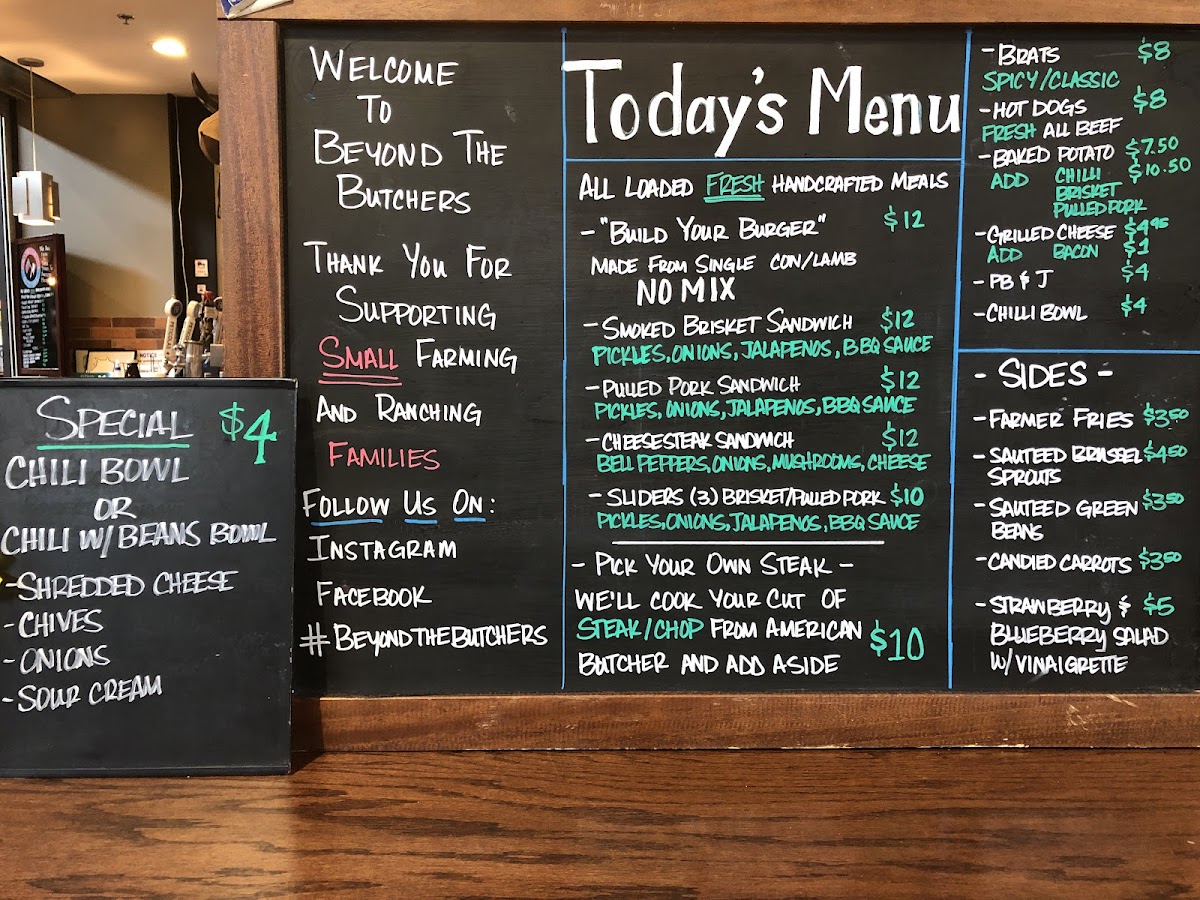 SPECIAL $4
CHILI BOWL
OR
CHILI W/BEANS BOWL
-SHREDDED CHEESE
-CHIVES
-ONIONS
-SOUR CREAM
WELCOME
TO
BEYOND THE
BUTCHERS
THANK YOU FOR
SUPPORTING
SMALL FARMING
AND RANCHING
FAMILIES
FOLLOW US ON:
INSTAGRAM
FACEBOOK
#BEYONDTHEBUTCHERS
Today's Menu
ALL LOADED FRESH HANDCRAFTED MEALS
- "BUILD YOUR BURGER" $12
MADE FROM SINGLE COW/LAMB
NO MIX
- SMOKED BRISKET SANDWICH $12
PICKLES, ONIONS, JALAPENOS, BBQ SAUCE
- PULLED PORK SANDWICH $12
PICKLES, ONIONS, JALAPENOS, BBQ SAUCE
- CHEESESTEAK SANDWICH $12
BELL PEPPERS, ONIONS, MUSHROOMS, CHEESE
- SLIDERS (3) BRISKET/PULLED PORK $10
PICKLES, ONIONS, JALAPENOS, BBQ SAUCE
- PICK YOUR OWN STEAK -
WE'LL COOK YOUR CUT OF
STEAK/CHOP FROM AMERICAN $10
BUTCHER AND ADD A SIDE
- BRATS $8
SPICY/CLASSIC
- HOT DOGS $8
FRESH ALL BEEF
- BAKED POTATO $7.50
ADD CHILLI $10.50
BRISKET
PULLED PORK
- GRILLED CHEESE $4.95
ADD BACON $1
- PB & J $4
- CHILLI BOWL $4
- SIDES -
- FARMER FRIES $3.50
- SAUTEED BRUSSEL $4.50
SPROUTS
- SAUTEED GREEN $3.50
BEANS
- CANDIED CARROTS $3.50
- STRAWBERRY & $5
BLUEBERRY SALAD
W/VINAIGRETTE
NOTICE